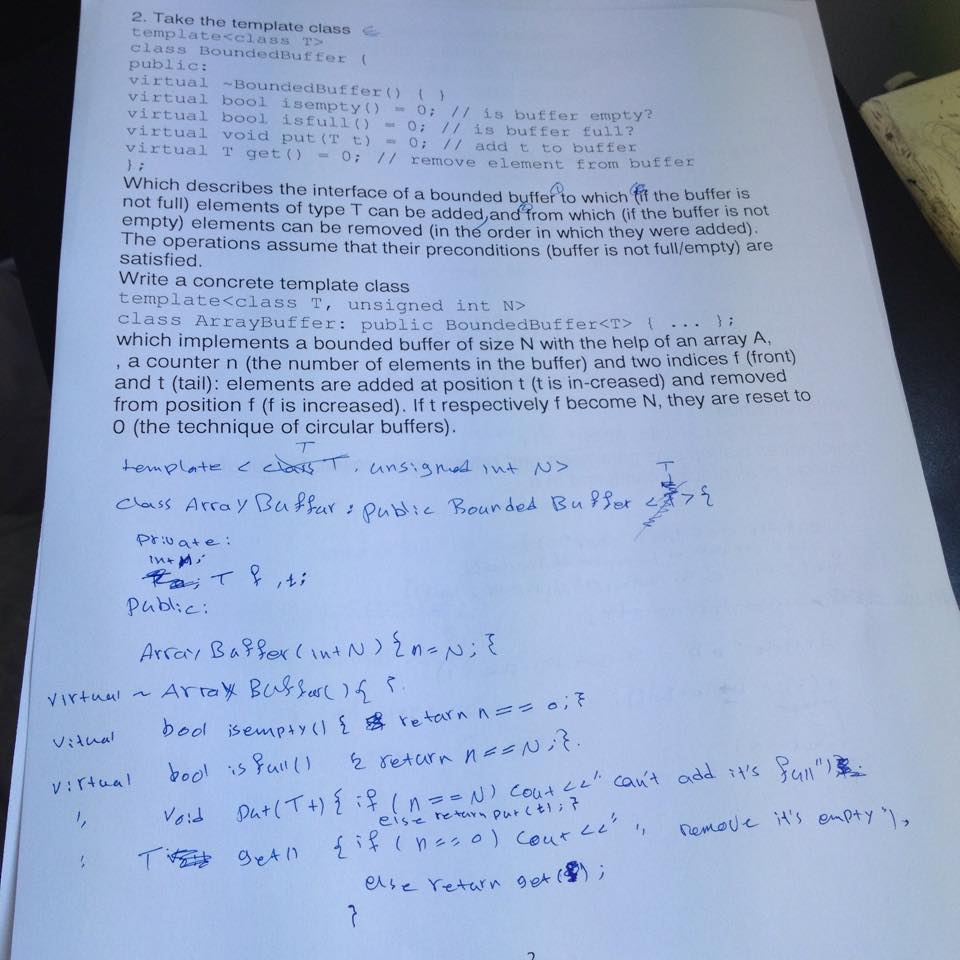 2. Take the template class
template<class T>
class BoundedBuffer {
public:
virtual ~BoundedBuffer() { }
virtual bool isempty() = 0; // is buffer empty?
virtual bool isfull() = 0; // is buffer full?
virtual void put(T t) = 0; // add t to buffer
virtual T get() = 0; // remove element from buffer
};
Which describes the interface of a bounded buffer to which (if the buffer is
not full) elements of type T can be added and from which (if the buffer is not
empty) elements can be removed (in the order in which they were added).
The operations assume that their preconditions (buffer is not full/empty) are
satisfied.
Write a concrete template class
template<class T, unsigned int N>
class ArrayBuffer: public BoundedBuffer<T> { ... };
which implements a bounded buffer of size N with the help of an array A,
, a counter n (the number of elements in the buffer) and two indices f (front)
and t (tail): elements are added at position t (t is in-creased) and removed
from position f (f is increased). If t respectively f become N, they are reset to
0 (the technique of circular buffers).
T
template < class T, unsigned int N>
T
class Array Buffer : public Bounded Buffer < > {
private:
int n;
T f, t;
public:
Array Buffer (int N) { n = N; }
virtual ~ Array Buffer() { }
vitual bool isempty() { return n == 0; }
virtual bool isfull() { return n == N; }
" void put(T t) { if (n == N) cout << "can't add it's full")
else return put(t); }
" T get() { if (n == 0) cout << " " remove it's empty"),
else return get( );
}
2